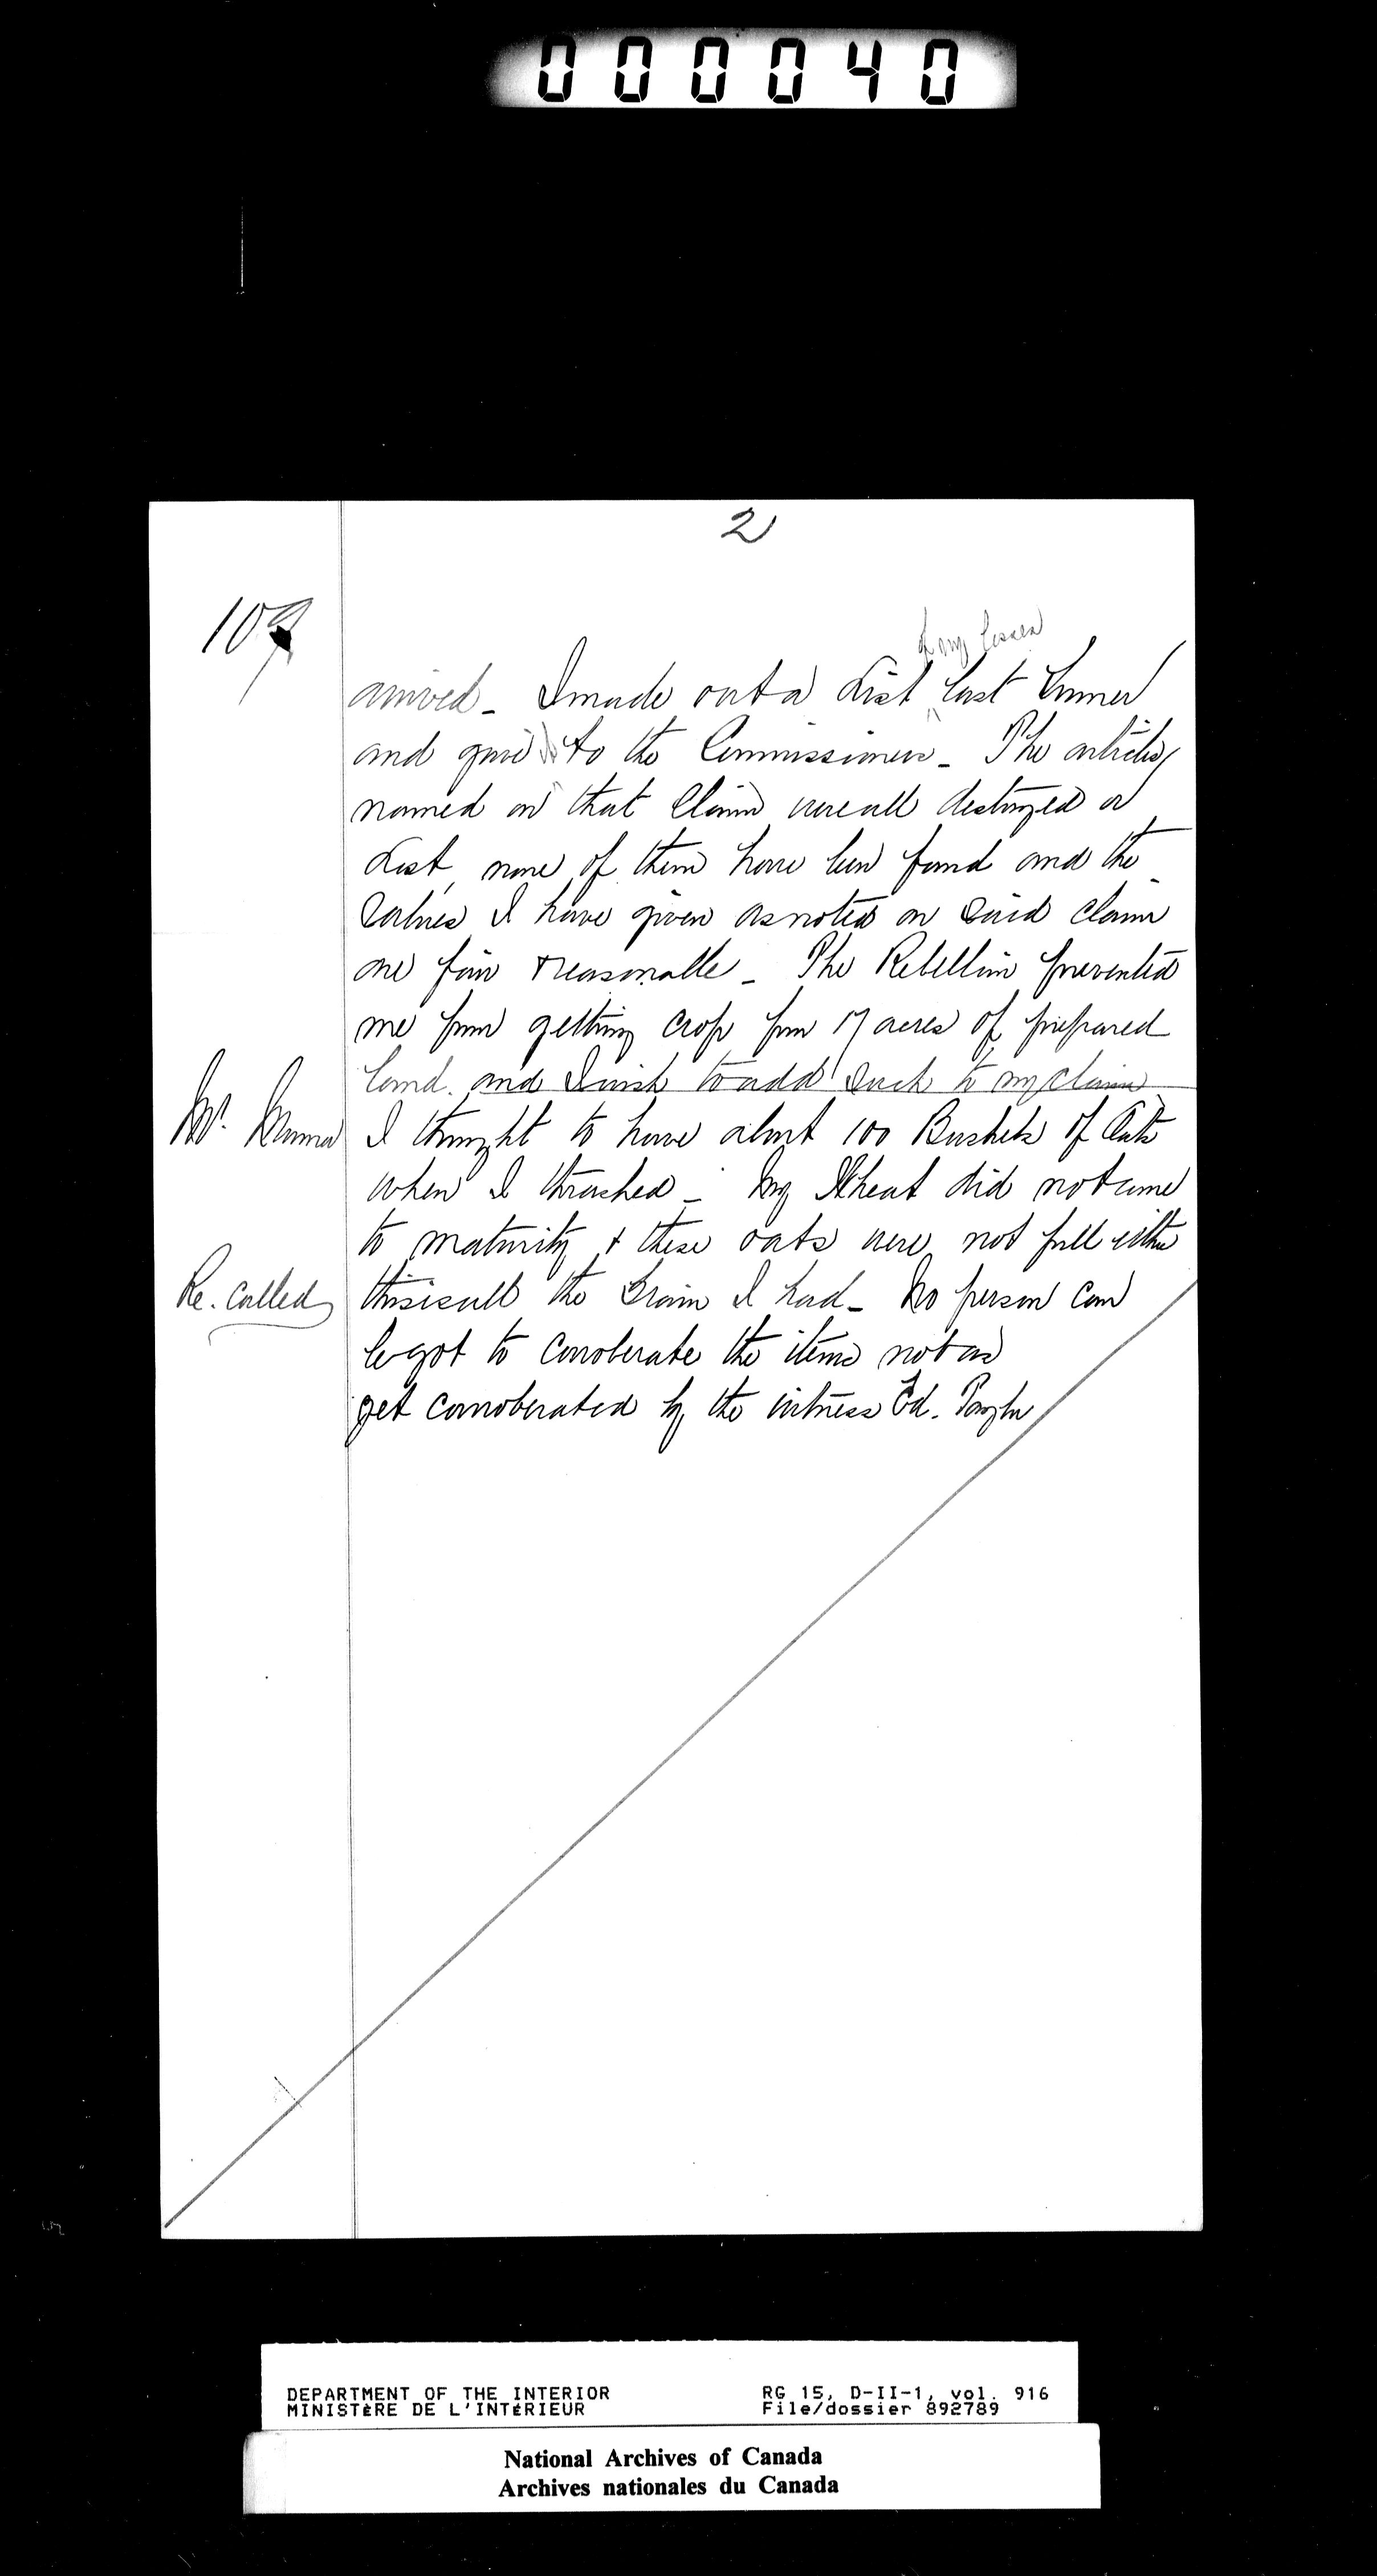 000040
2
109
of my losses
arrived - I made out a List last Summer
and gave it to the Commissioners - The articles
named on that Claim were all destroyed or
Lost, none of them have been found and the
Values I have given as noted on said claim
are fair & reasonable - The Rebellion prevented
me from getting crop from 17 acres of prepared
land. and I wish to add such to my claim
Mr.
I thought to have about 100 Bushels of Oats
when I thrashed - My Wheat did not come
to maturity & these oats were not full either
Re. called
this is all the Grain I had - No person can
be got to corroberate the items not as
yet corroberated by the witness Ed.
DEPARTMENT OF THE INTERIOR
MINISTÈRE DE L'INTÉRIEUR
RG 15, D-II-1, vol. 916
File/dossier 892789
National Archives of Canada
Archives nationales du Canada